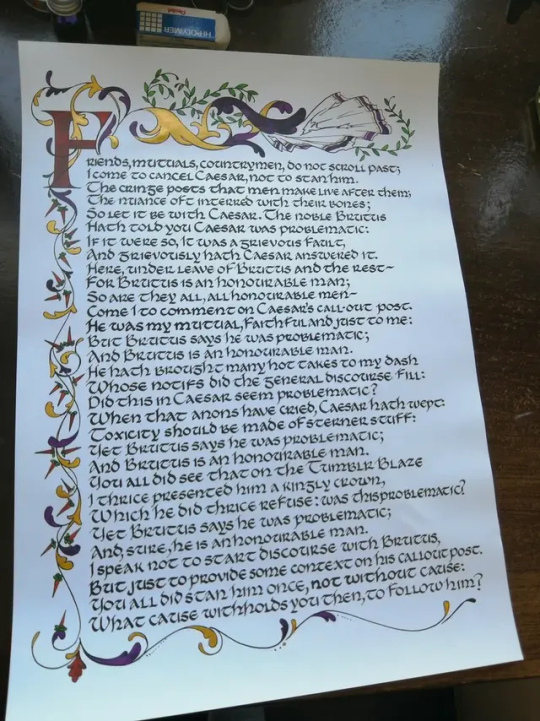 HI-POLYMER
Pentel
Friends, mutuals, countrymen, do not scroll past;
I come to cancel Caesar, not to stan him.
The cringe posts that men make live after them;
The nuance oft interred with their bones;
So let it be with Caesar. The noble Brutus
Hath told you Caesar was problematic:
If it were so, it was a grievous fault,
And grievously hath Caesar answered it.
Here, under leave of Brutus and the rest–
For Brutus is an honourable man;
So are they all, all honourable men–
Come I to comment on Caesar's call-out post.
He was my mutual, faithful and just to me:
But Brutus says he was problematic;
And Brutus is an honourable man.
He hath brought many hot takes to my dash
Whose notifs did the general discourse fill:
Did this in Caesar seem problematic?
When that anons have cried, Caesar hath wept:
Toxicity should be made of sterner stuff:
Yet Brutus says he was problematic;
And Brutus is an honourable man.
You all did see that on the Tumblr Blaze
I thrice presented him a kingly crown,
Which he did thrice refuse: was this problematic?
Yet Brutus says he was problematic;
And, sure, he is an honourable man.
I speak not to start discourse with Brutus,
But just to provide some context on his callout post.
You all did stan him once, not without cause:
What cause withholds you then, to follow him?